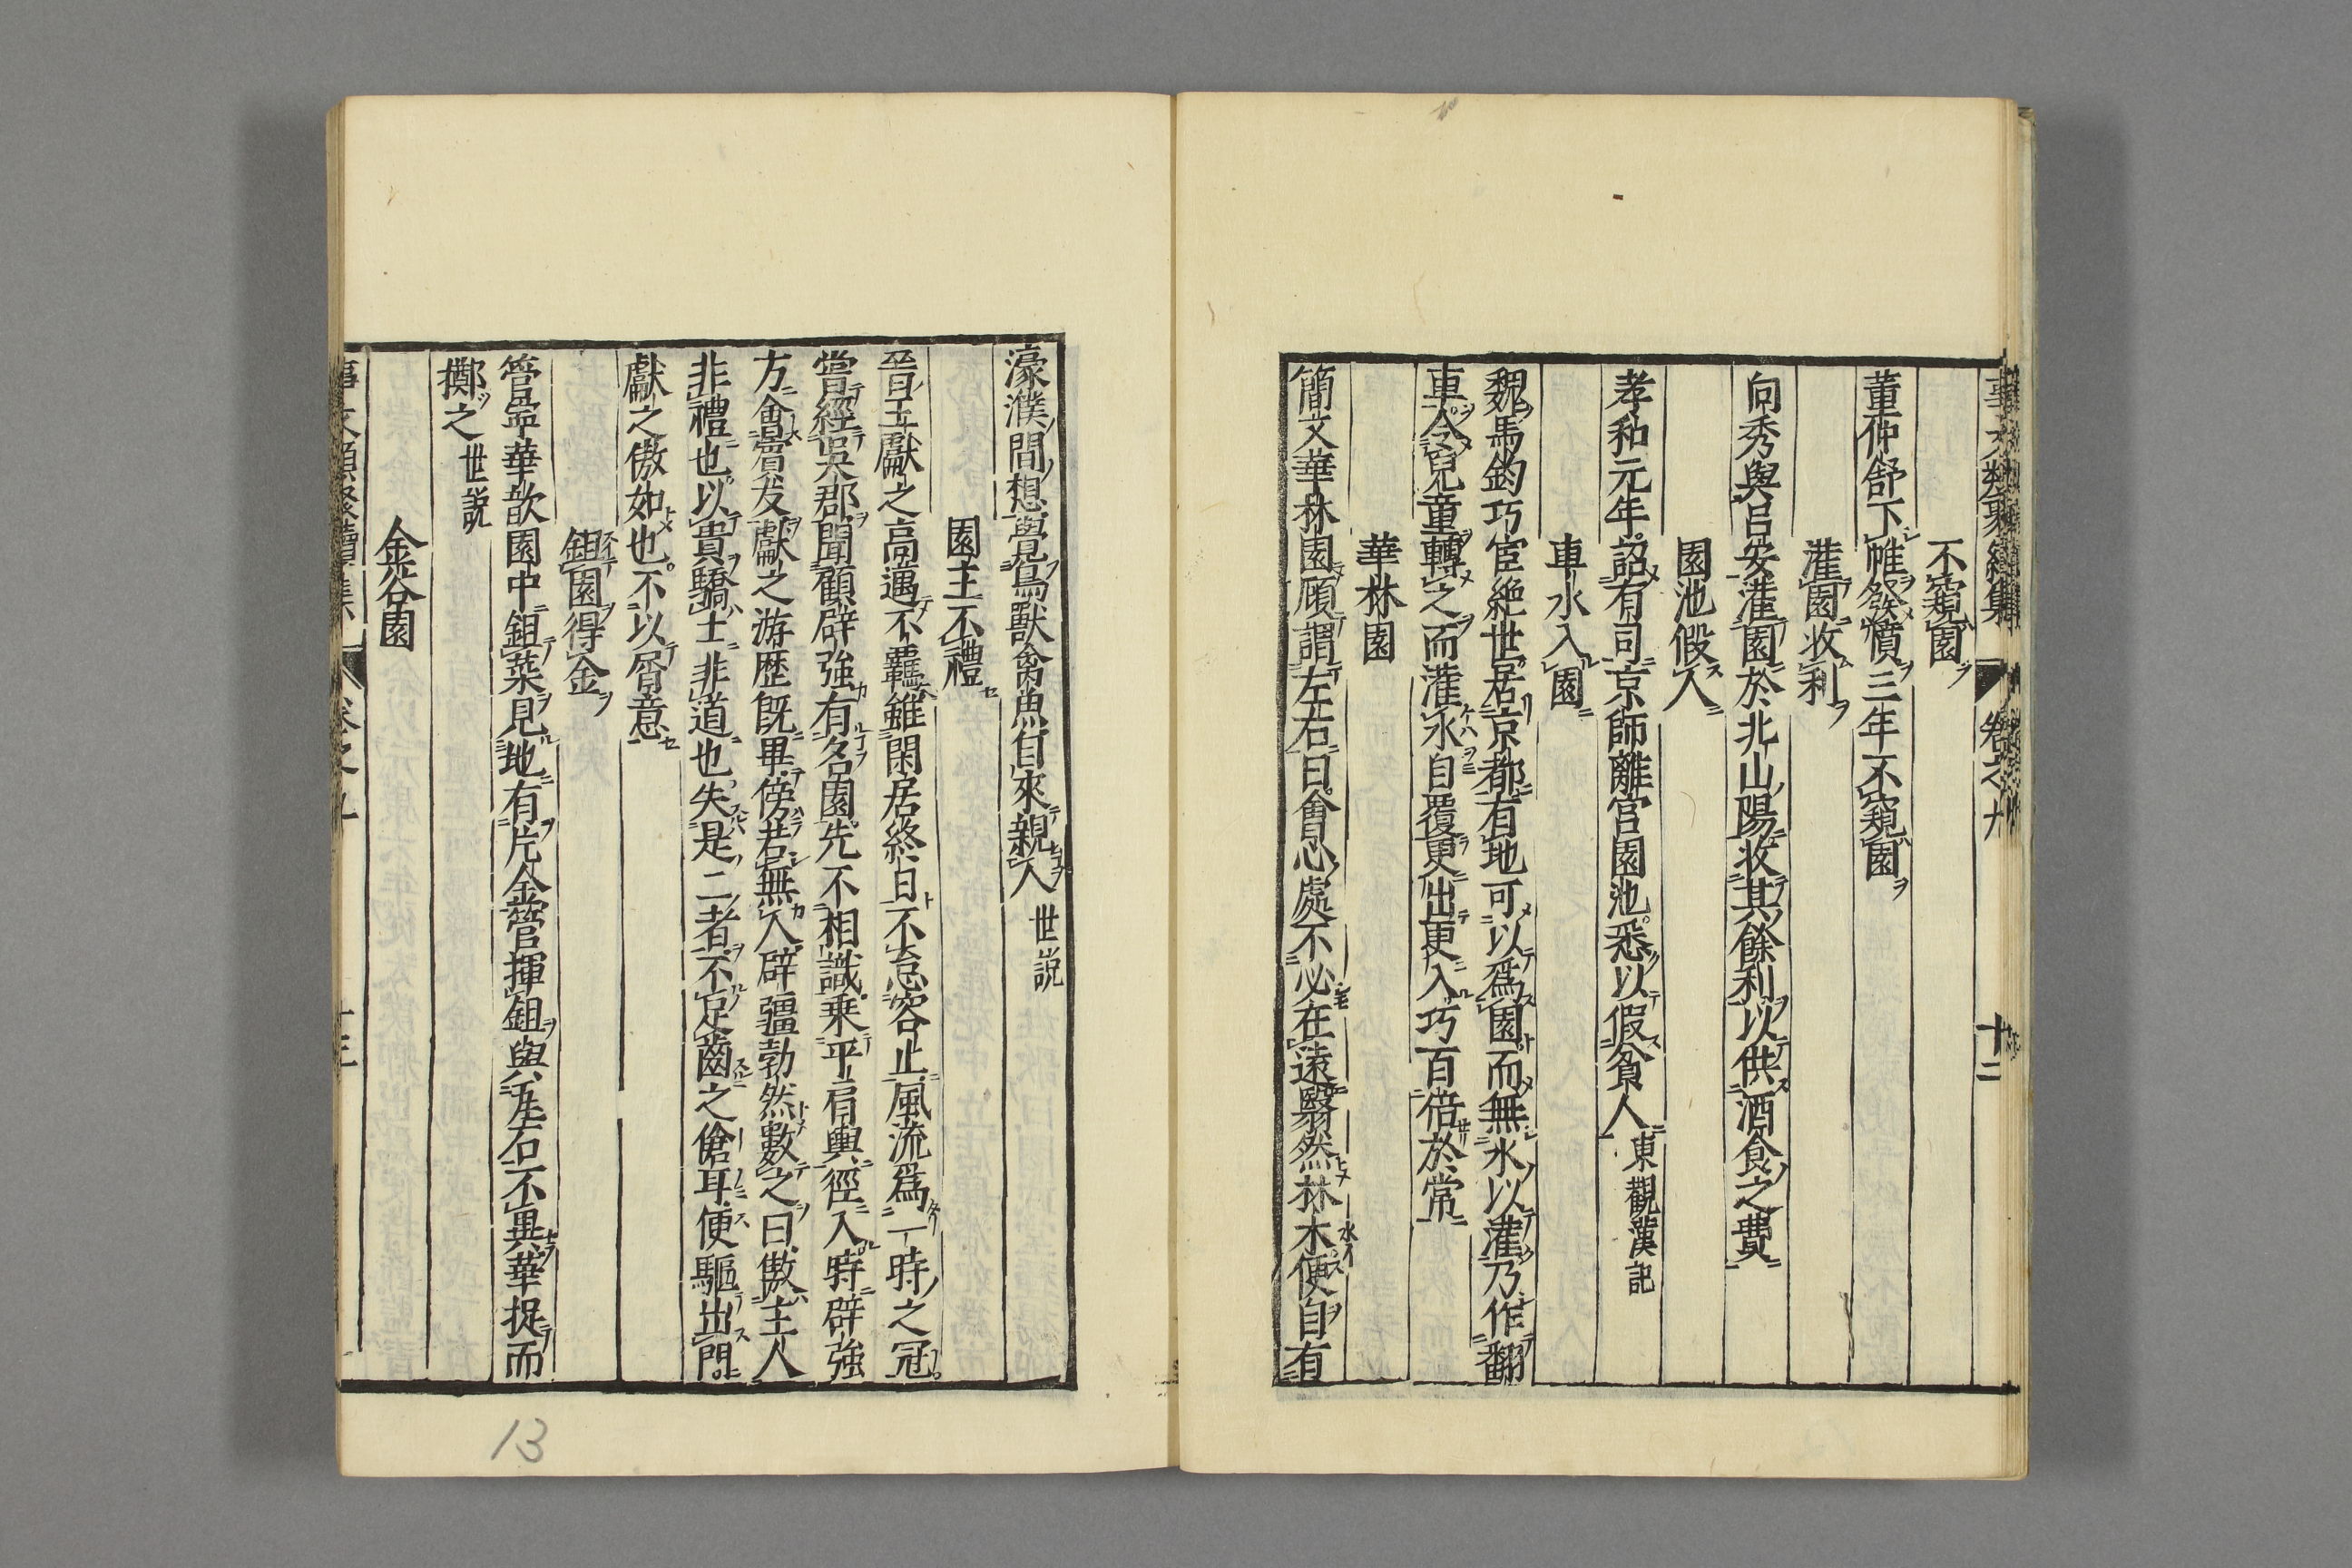 事文類聚續集 卷之九 十二
不窺園
董仲舒下帷發憤三年不窺園
灌園收利
向秀與呂安灌園於北山陽收其餘利以供酒食之費
園池假人
孝和元年詔有司京師離宮園池悉以假貧人 東觀漢記
車水入園
魏馬鈞巧宦絶世居京都有地可以爲園而無水以灌乃作翻
車令兒童轉之而灌水自覆更出更入巧百倍於常
華林園
簡文華林園顧謂左右曰會心處不必在遠翳然林木便自有
濠濮間想覺鳥獸禽魚自來親人 世説
園主不禮
晉王獻之高邁不羈雖閑居終日不怠容止風流爲一時之冠
嘗經吳郡聞顧辟強有名園先不相識乗平肩輿徑入時辟強
方會賓友獻之游歴既畢傍若無人辟疆勃然數之曰傲主人
非禮也以貴驕士非道也失是二者不足齒之傖耳便驅出門
獻之傲如也不以屑意
鉏園得金
管寧華歆園中鉏菜見地有片金管揮鉏與瓦石不異華捉而
擲之 世説
金谷園
事文類聚續集 卷之九 十三
13